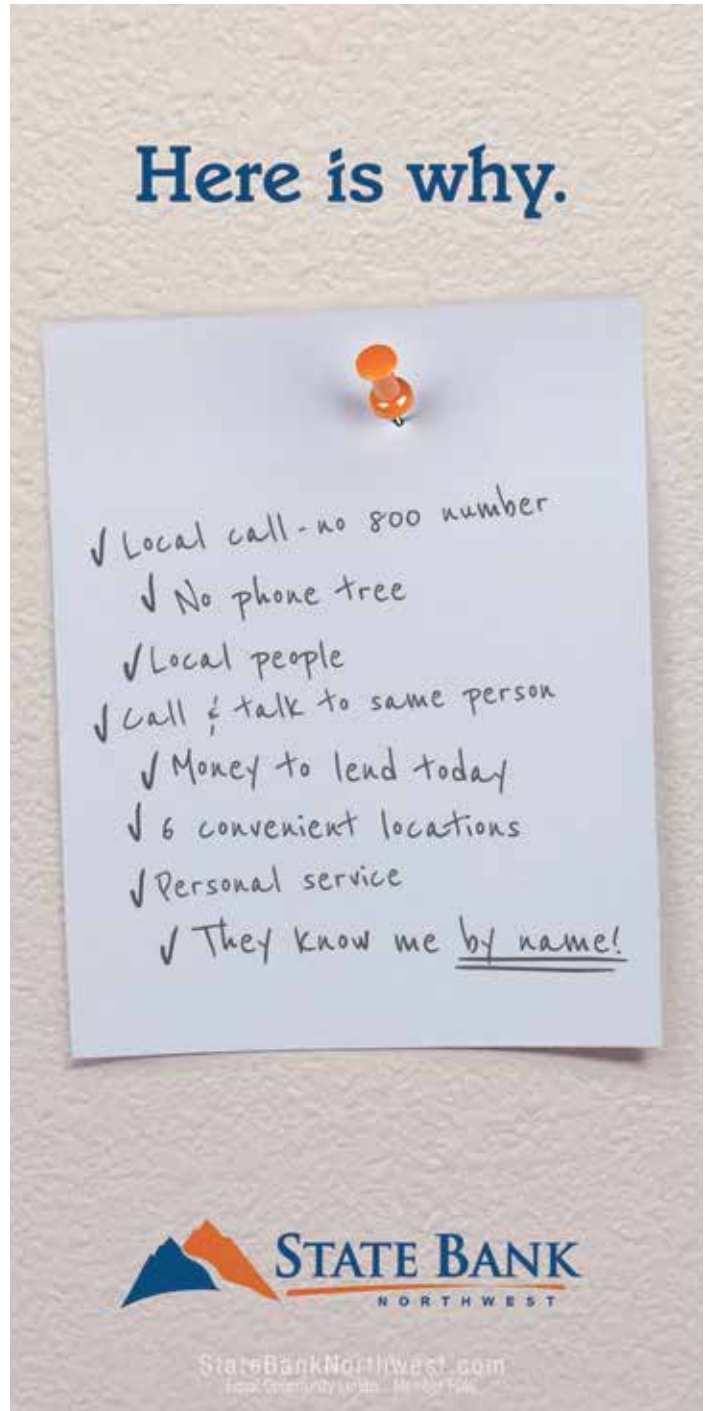 Here is why.
✓ Local call - no 800 number
✓ No phone tree
✓ Local people
✓ Call & talk to same person
✓ Money to lend today
✓ 6 convenient locations
✓ Personal service
✓ They know me by name!
STATE BANK
NORTHWEST
StateBankNorthwest.com
Equal Opportunity Lender Member FDIC